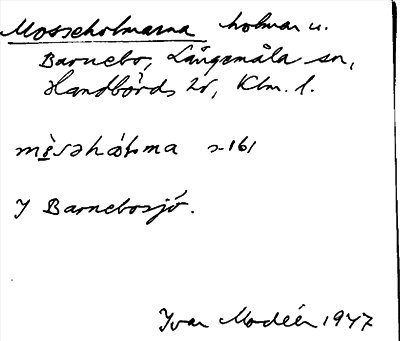 Mosseholmarna holmar u.
Barnebo, Långemåla sn,
Handbörds hd, Klm. l.
s. 161
I Barnebosjö.
Ivar Modéer 1947